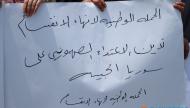 الحملة الوطنية لانهاء الانقسام
تدين الاعتداء الصهيوني على
سوريا الحبيبة
الحملة الوطنية لانهاء الانقسام